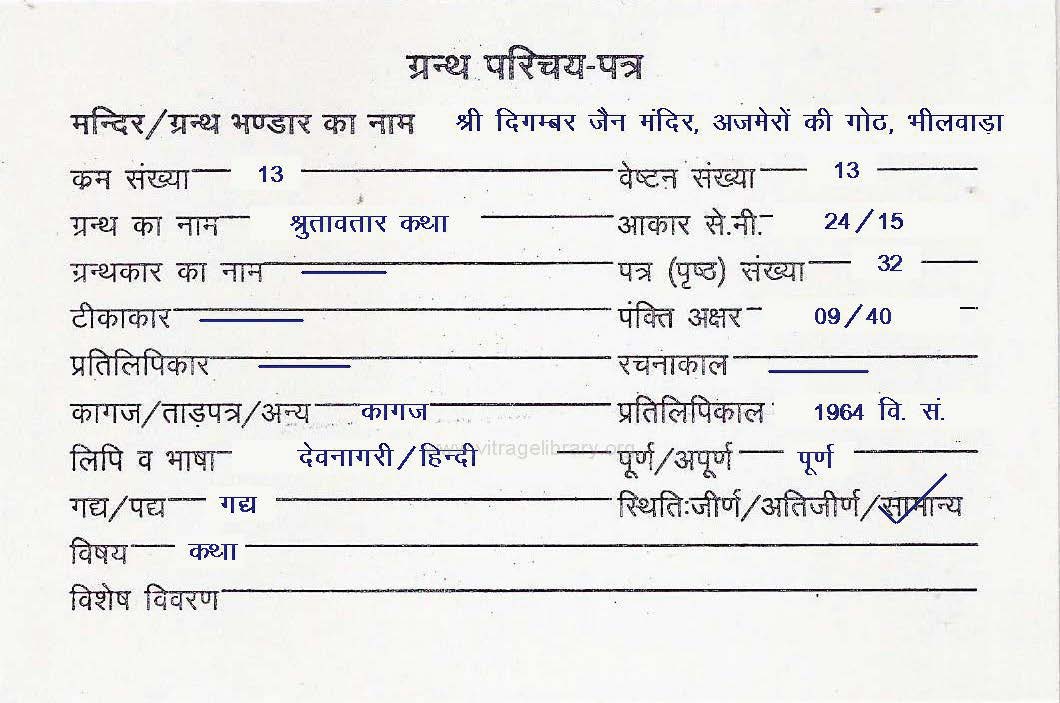 ग्रन्थ परिचय-पत्र
मन्दिर/ग्रन्थ भण्डार का नाम श्री दिगम्बर जैन मंदिर, अजमेरों की गोठ, भीलवाड़ा
कम संख्या 13 वेष्टन संख्या 13
ग्रन्थ का नाम श्रुतावतार कथा आकार से.मी. 24/15
ग्रन्थकार का नाम पत्र (पृष्ठ) संख्या 32
टीकाकार पंक्ति अक्षर 09/40
प्रतिलिपिकार रचनाकाल
कागज/ताड़पत्र/अन्य कागज प्रतिलिपिकाल 1964 वि. सं.
www.vitragelibrary.org
लिपि व भाषा देवनागरी/हिन्दी पूर्ण/अपूर्ण पूर्ण
गद्य/पद्य गद्य स्थितिःजीर्ण/अतिजीर्ण/सामान्य
विषय कथा
विशेष विवरण